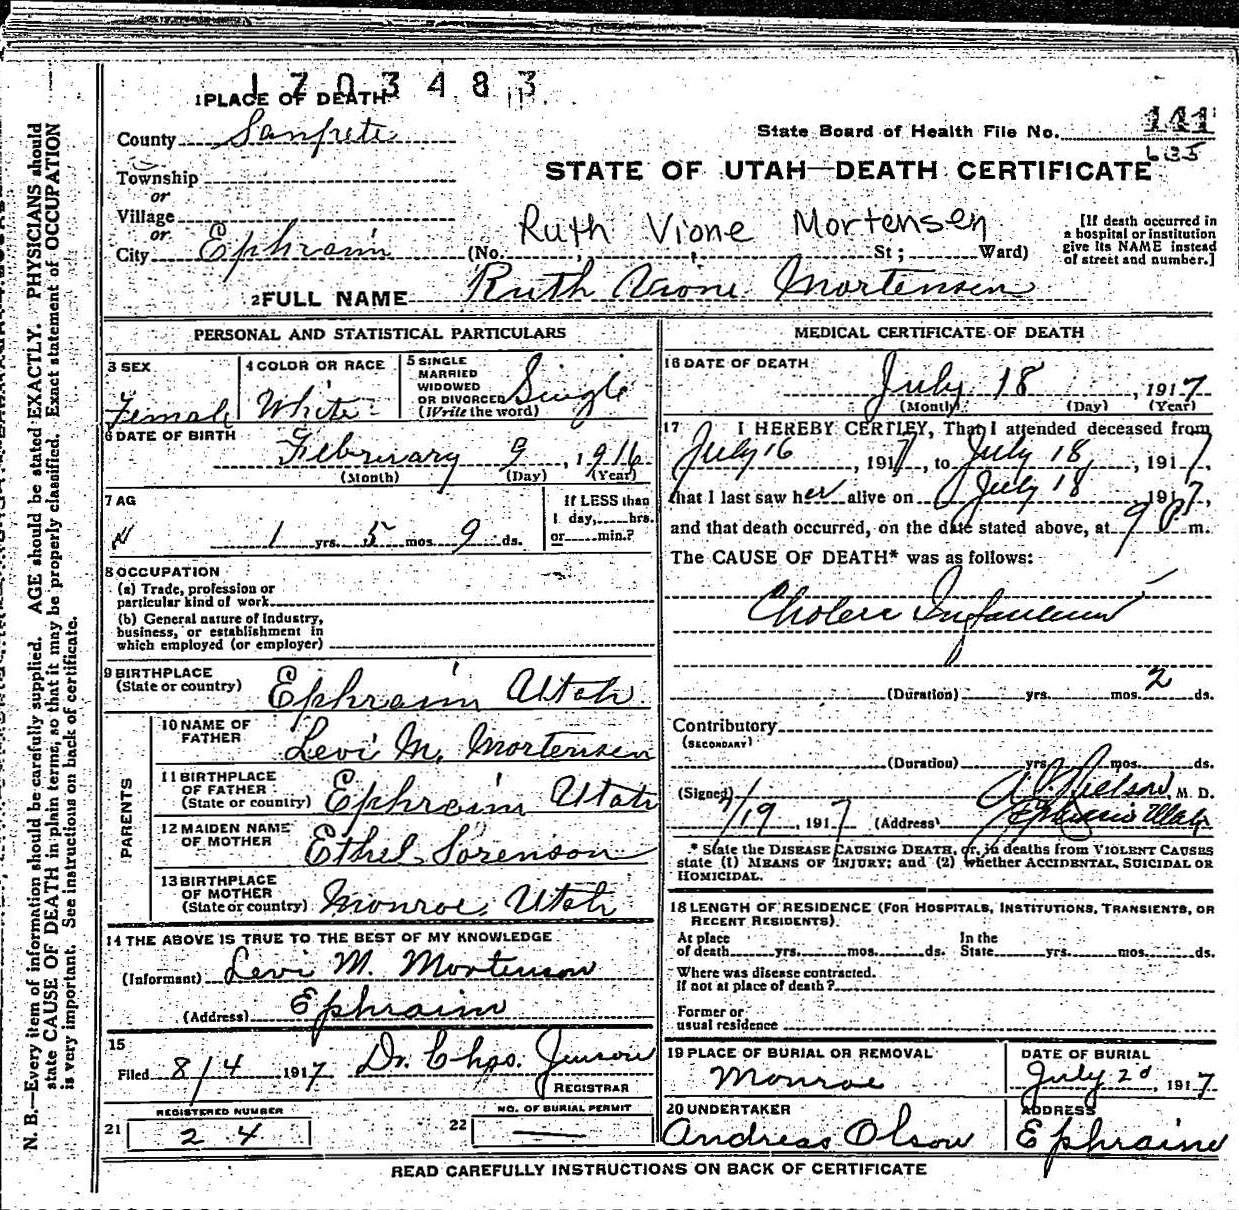 1703483
1 PLACE OF DEATH
County Sanpete
State Board of Health File No. 141
635
STATE OF UTAH—DEATH CERTIFICATE
Township
or
Village
or
City Ephraim
Ruth Vione Mortensen
(No. , St; Ward)
[If death occurred in
a hospital or institution
give its NAME instead
of street and number.]
2 FULL NAME Ruth Vione Mortensen
PERSONAL AND STATISTICAL PARTICULARS
3 SEX
Female
4 COLOR OR RACE
White
5 SINGLE
MARRIED
WIDOWED
OR DIVORCED
(Write the word)
Single
6 DATE OF BIRTH
February 9, 1916
(Month) (Day) (Year)
7 AG
1 yrs. 5 mos. 9 ds.
If LESS than
1 day, hrs.
or min.?
8 OCCUPATION
(a) Trade, profession or
particular kind of work
(b) General nature of industry,
business, or establishment in
which employed (or employer)
9 BIRTHPLACE
(State or country) Ephraim Utah
PARENTS
10 NAME OF
FATHER
Levi M. Mortensen
11 BIRTHPLACE
OF FATHER
(State or country) Ephraim Utah
12 MAIDEN NAME
OF MOTHER
Ethel Sorenson
13 BIRTHPLACE
OF MOTHER
(State or country) Monroe, Utah
14 THE ABOVE IS TRUE TO THE BEST OF MY KNOWLEDGE
(Informant) Levi M. Mortenson
(Address) Ephraim
15
Filed 8/4 1917 Dr. Chas. Jenson
REGISTRAR
REGISTERED NUMBER
21 24
NO. OF BURIAL PERMIT
22 —
MEDICAL CERTIFICATE OF DEATH
16 DATE OF DEATH
July 18, 1917
(Month) (Day) (Year)
17 I HEREBY CERTIFY, That I attended deceased from
July 16, 1917, to July 18, 1917,
that I last saw her alive on July 18, 1917,
and that death occurred, on the date stated above, at 9 P. m.
The CAUSE OF DEATH* was as follows:
Cholera Infantum
(Duration) yrs. mos. 2 ds.
Contributory
(SECONDARY)
(Duration) yrs. mos. ds.
(Signed) Nielson, M. D.
7/19, 1917 (Address) Ephraim Utah
* State the DISEASE CAUSING DEATH, or, in deaths from VIOLENT CAUSES
state (1) MEANS OF INJURY; and (2) whether ACCIDENTAL, SUICIDAL OR
HOMICIDAL.
18 LENGTH OF RESIDENCE (FOR HOSPITALS, INSTITUTIONS, TRANSIENTS, OR
RECENT RESIDENTS).
At place
of death yrs. mos. ds.
In the
State yrs. mos. ds.
Where was disease contracted.
If not at place of death?
Former or
usual residence
19 PLACE OF BURIAL OR REMOVAL
Monroe
DATE OF BURIAL
July 20, 1917
20 UNDERTAKER
Andreas Olson
ADDRESS
Ephraim
READ CAREFULLY INSTRUCTIONS ON BACK OF CERTIFICATE
N. B.—Every item of information should be carefully supplied. AGE should be stated EXACTLY. PHYSICIANS should
state CAUSE OF DEATH in plain terms, so that it may be properly classified. Exact statement of OCCUPATION
is very important. See instructions on back of certificate.